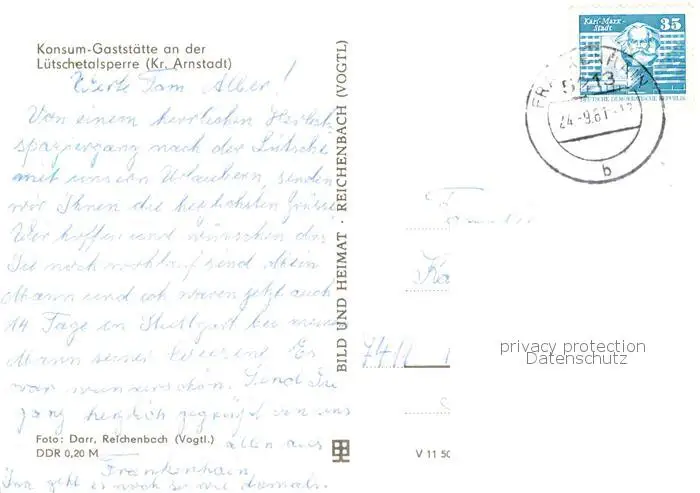 Konsum-Gaststätte an der
Lütschetalsperre (Kr. Arnstadt)
Werte Fam Alber!
Von einem herrlichen Herbst
spaziergang nach der Lütsche
mit unsern Urlaubern senden
wir Ihnen die herzlichsten Grüsse
Wir hoffen und wünschen das
Sie noch wohlauf sind Mein
Mann und ich waren jetzt auch
14 Tage in Stuttgart bei
Mann seines Es
war wunderschön. Sind Sie
ganz herzlich gegrüßt von uns
allen aus
Frankenhain
geht es noch so wie damals.
Foto: Darr, Reichenbach (Vogtl.)
DDR 0,20 M
BILD UND HEIMAT · REICHENBACH (VOGTL)
Karl-Marx-
Stadt
35
DEUTSCHE DEMOKRATISCHE REPUBLIK
FRANKENHAIN
5213
24.-9.81
b
Familie
Ka
privacy protection
Datenschutz
V 11 50